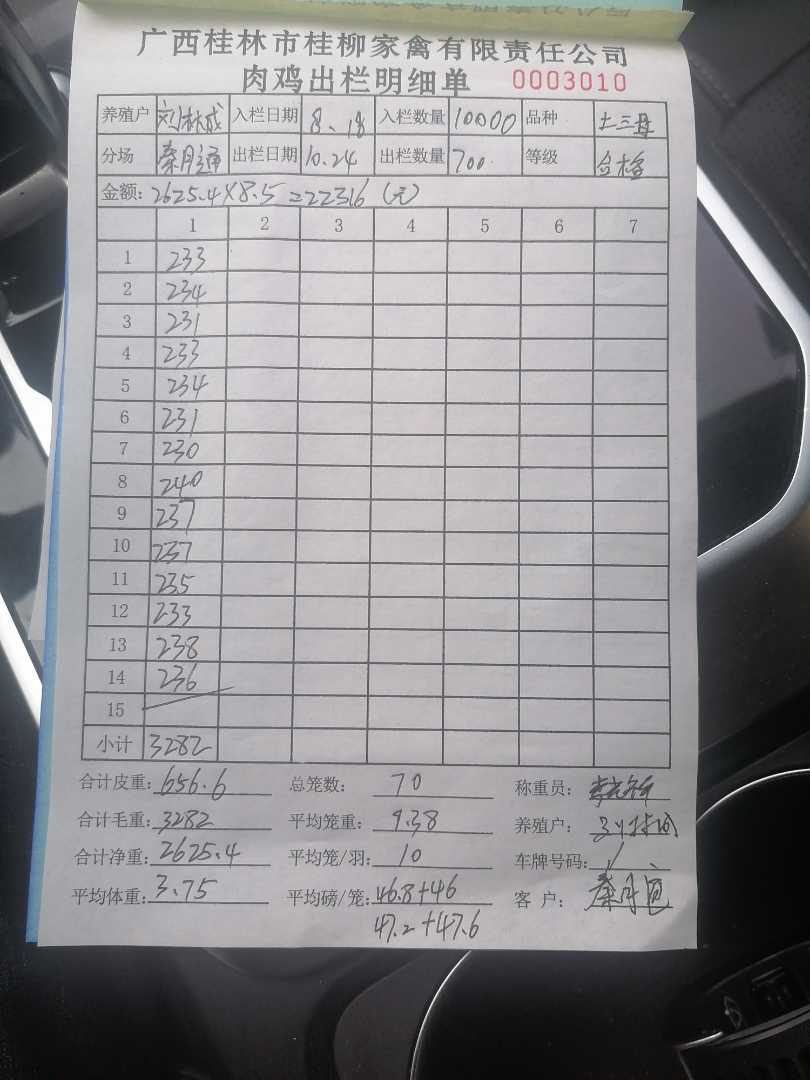 广西桂林市桂柳家禽有限责任公司
肉鸡出栏明细单 0003010
养殖户 刘林成 入栏日期 8.18 入栏数量 10000 品种 土三母
分场 秦月通 出栏日期 10.24 出栏数量 700. 等级 合格
金额: 2625.4×8.5=22316 (元)
1 2 3 4 5 6 7
1 233
2 234
3 231
4 233
5 234
6 231
7 230
8 240
9 237
10 237
11 235
12 233
13 238
14 236
15
小计 3282
合计皮重: 656.6 总笼数: 70 称重员:
合计毛重: 3282 平均笼重: 9.38 养殖户: 刘林成
合计净重: 2625.4 平均笼/羽: 10 车牌号码:
平均体重: 3.75 平均磅/笼: 46.8+46 客 户: 秦月通
47.2+47.6